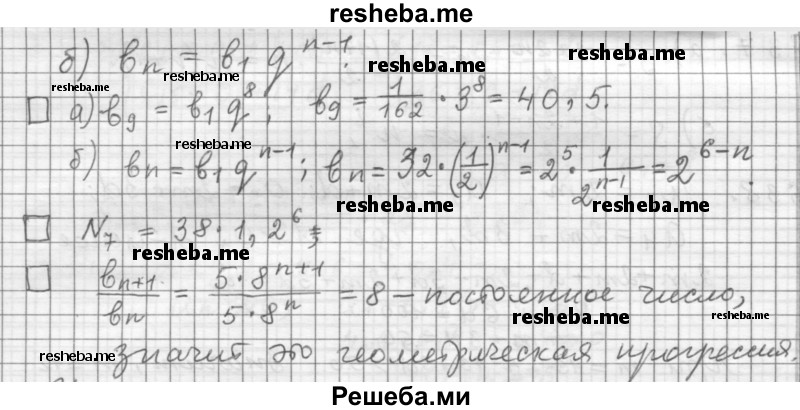 resheba.me
б) bₙ = b₁ qⁿ⁻¹. resheba.me
resheba.me resheba.me resheba.me
□ а) b₉ = b₁q⁸; b₉ = 1/162 · 3⁸ = 40,5.
resheba.me
б) bₙ = b₁qⁿ⁻¹; bₙ = 32 · (1/2)ⁿ⁻¹ = 2⁵ · 1/2ⁿ⁻¹ = 2⁶⁻ⁿ.
resheba.me resheba.me
□ N₇ = 38 · 1,2⁶;
resheba.me
□ bₙ₊₁/bₙ = 5·8ⁿ⁺¹/5·8ⁿ = 8 – постоянное число,
resheba.me resheba.me
resheba.me
значит это геометрическая прогрессия.
Решеба.ми